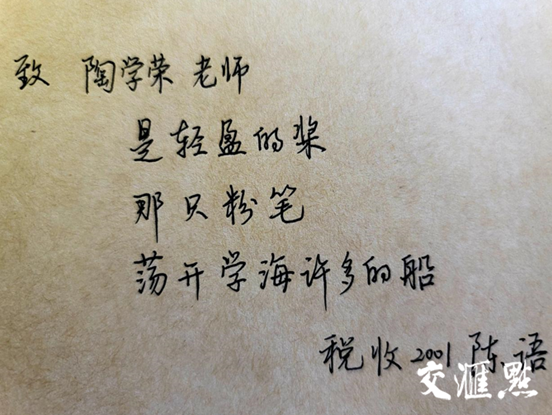 致 陶学荣 老师
是轻盈的桨
那只粉笔
荡开学海许多的船
税收2001 陈语
交汇點